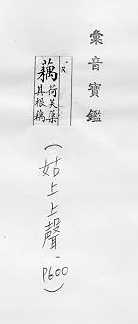 彙音寶鑑
藕
荷芙蕖
其根藕
(姑上上聲 P600)